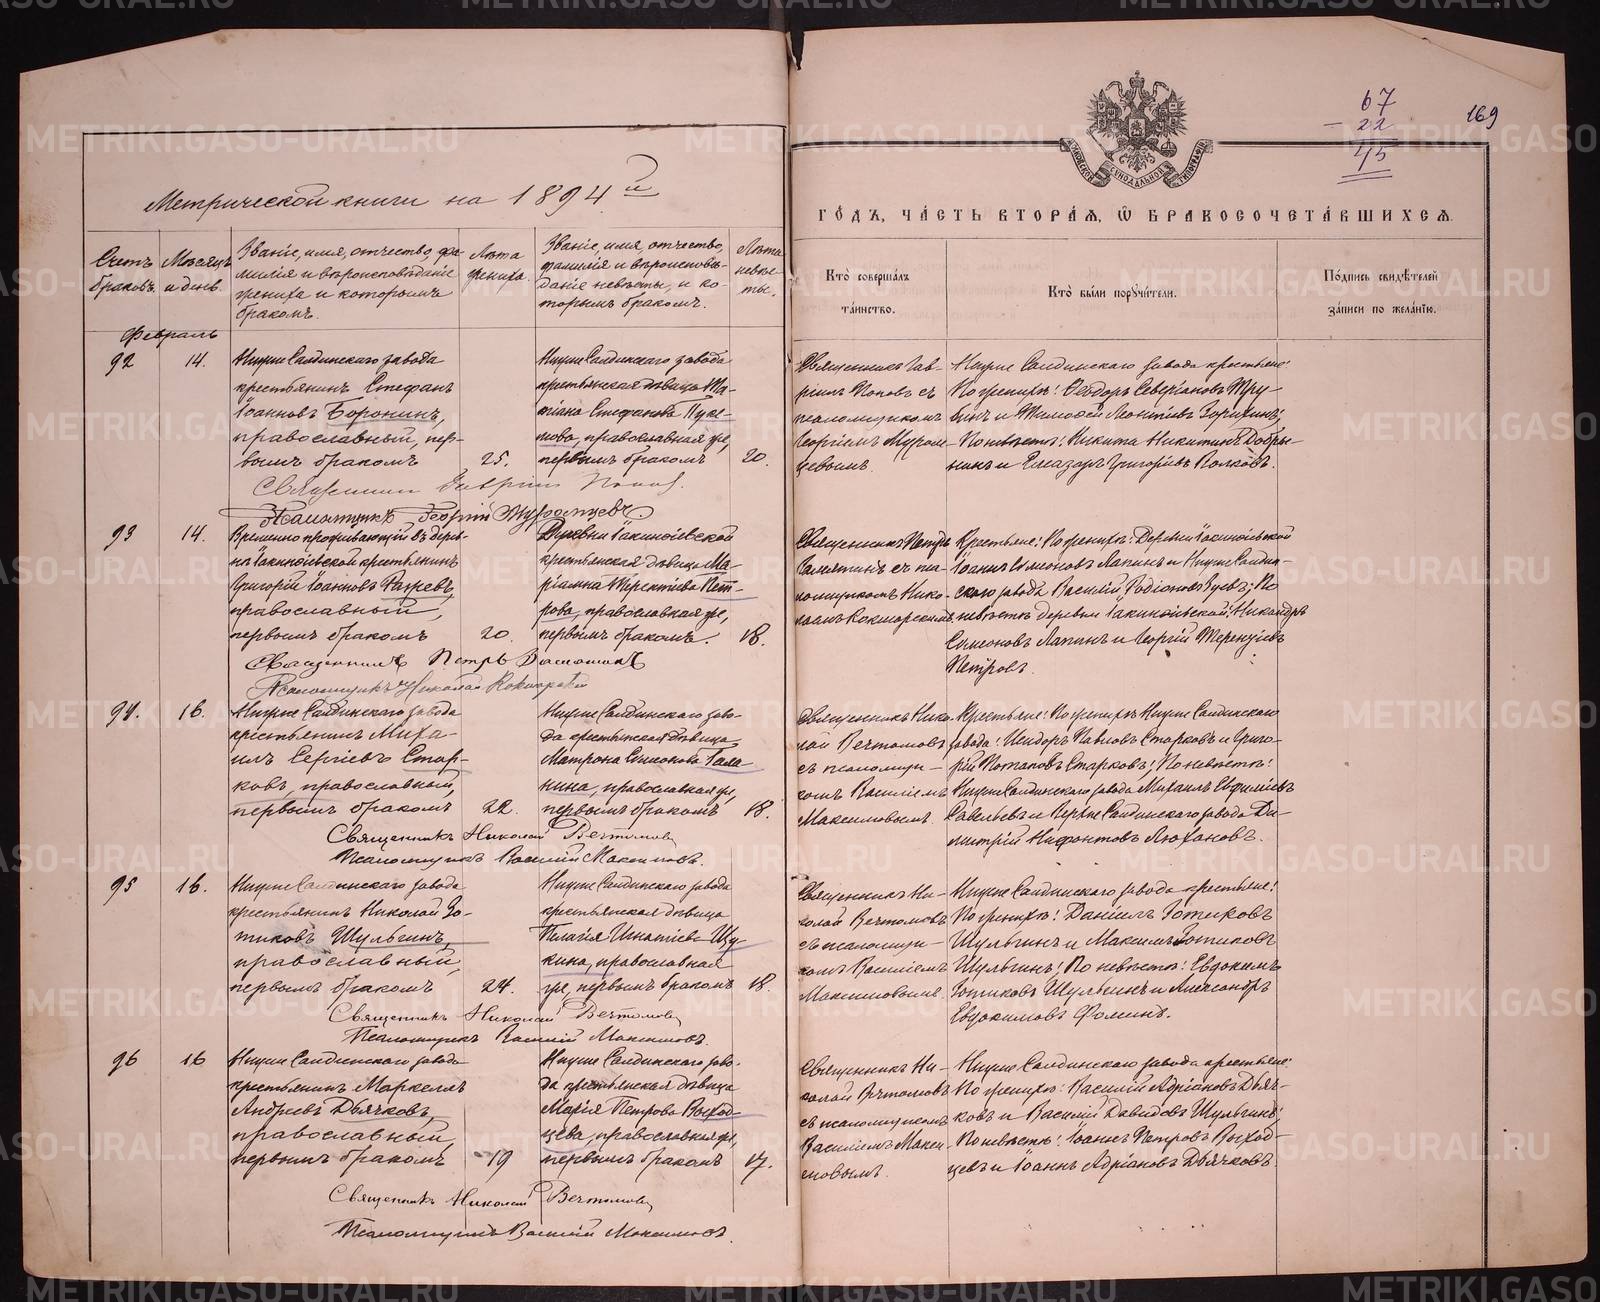 67
- 22
45
169
Метрической книги на 1894й
ГОДЪ, ЧАСТЬ ВТОРАЯ, Ѡ БРАКОСОЧЕТАВШИХСЯ.
Счетъ браковъ.
Мѣсяцъ и день.
Званіе, имя, отчество, фа-
милія и вѣроисповѣданіе
жениха и которымъ
бракомъ.
Лѣта
жениха.
Званіе, имя, отчество,
фамилія и вѣроисповѣ-
даніе невѣсты, и ко-
торымъ бракомъ.
Лѣта
невѣс-
ты.
Кто совершалъ
таинство.
Кто были поручители.
Подпись свидѣтелей
записи по желанію.
Февраль
92
14.
Нижне Салдинскаго завода
крестьянинъ Стефанъ
Іоанновъ Боронинъ,
православный, пер-
вымъ бракомъ
25.
Нижне Салдинскаго завода
крестьянская дѣвица Та-
тіана Стефанова
православная же,
первымъ бракомъ
20.
Священникъ Гав-
ріилъ Поповъ съ
псаломщикомъ
Георгіемъ Муром-
цевымъ.
Нижне Салдинскаго завода крестьяне:
По женихѣ: Ѳеодоръ Северіановъ Тру-
бинъ и Тимоѳей Леонтіевъ Зорихинъ;
По невѣстѣ: Никита Никитинъ Добры-
нинъ и Елеазаръ Григоріевъ Волковъ.
Священникъ Гавріилъ Поповъ.
Псаломщикъ Георгій Муромцевъ.
93
14.
Временно проживающій въ дерев-
нѣ Іакиноіевской крестьянинъ
Григорій Іоанновъ
православный,
первымъ бракомъ
20.
Деревни Іакиноіевской
крестьянская дѣвица Ма-
ріанна Терентіева Пет-
рова, православная же,
первымъ бракомъ.
18.
Священникъ Петръ
съ пса-
ломщикомъ Нико-
лаемъ Кокшарскимъ
Крестьяне: По женихѣ: Деревни Іакиноіевской
Іоаннъ Симеоновъ Лапинъ и Нижне Салдин-
скаго завода Василій Родіоновъ Зуевъ; По
невѣстѣ: деревни Іакиноіевской: Никандръ
Симеоновъ Лапинъ и Георгій Терентіевъ
Петровъ.
Священникъ Петръ
Псаломщикъ Николай Кокшарскій
94.
16.
Нижне Салдинскаго завода
крестьянинъ Миха-
илъ Сергіевъ Стар-
ковъ, православный,
первымъ бракомъ
22.
Нижне Салдинскаго заво-
да крестьянская дѣвица
Матрона Симеонова Гала-
нина, православная же,
первымъ бракомъ
18.
Священникъ Нико-
лай Вечтомовъ
съ псаломщи-
комъ Василіемъ
Максимовымъ.
Крестьяне: По женихѣ Нижне Салдинскаго
завода: Исидоръ Павловъ Старковъ и Григо-
рій Потаповъ Старковъ; По невѣстѣ:
Нижне Салдинскаго завода Михаилъ Евфиміевъ
Савельевъ и Верхне Салдинскаго завода Ди-
митрій Нифонтовъ Люхановъ.
Священникъ Николай Вечтомовъ
Псаломщикъ Василій Максимовъ.
95
16.
Нижне Салдинскаго завода
крестьянинъ Николай Зо-
тиковъ Шульгинъ,
православный,
первымъ бракомъ
24.
Нижне Салдинскаго завода
крестьянская дѣвица
Пелагія Игнатіева Щу-
кина, православная
же, первымъ бракомъ
18.
Священникъ Ни-
колай Вечтомовъ
съ псаломщи-
комъ Василіемъ
Максимовымъ.
Нижне Салдинскаго завода крестьяне:
По женихѣ: Даніилъ Зотиковъ
Шульгинъ и Максимъ Зотиковъ
Шульгинъ; По невѣстѣ: Евдокимъ
Зотиковъ Шульгинъ и Александръ
Евдокимовъ Фоминъ.
Священникъ Николай Вечтомовъ
Псаломщикъ Василій Максимовъ.
96
16
Нижне Салдинскаго завода
крестьянинъ Маркеллъ
Андреевъ Дьячковъ,
православный,
первымъ бракомъ
19
Нижне Салдинскаго заво-
да крестьянская дѣвица
Марія Петрова Выход-
цева, православная же,
первымъ бракомъ
17.
Священникъ Ни-
колай Вечтомовъ
съ псаломщикомъ
Василіемъ Макси-
мовымъ.
Нижне Салдинскаго завода крестьяне:
По женихѣ: Василій Адріановъ Дьяч-
ковъ и Василій Давидовъ Шульгинъ;
По невѣстѣ: Іоаннъ Петровъ Выход-
цевъ и Іоаннъ Адріановъ Дьячковъ.
Священникъ Николай Вечтомовъ
Псаломщикъ Василій Максимовъ.
METRIKI.GASO-URAL.RU